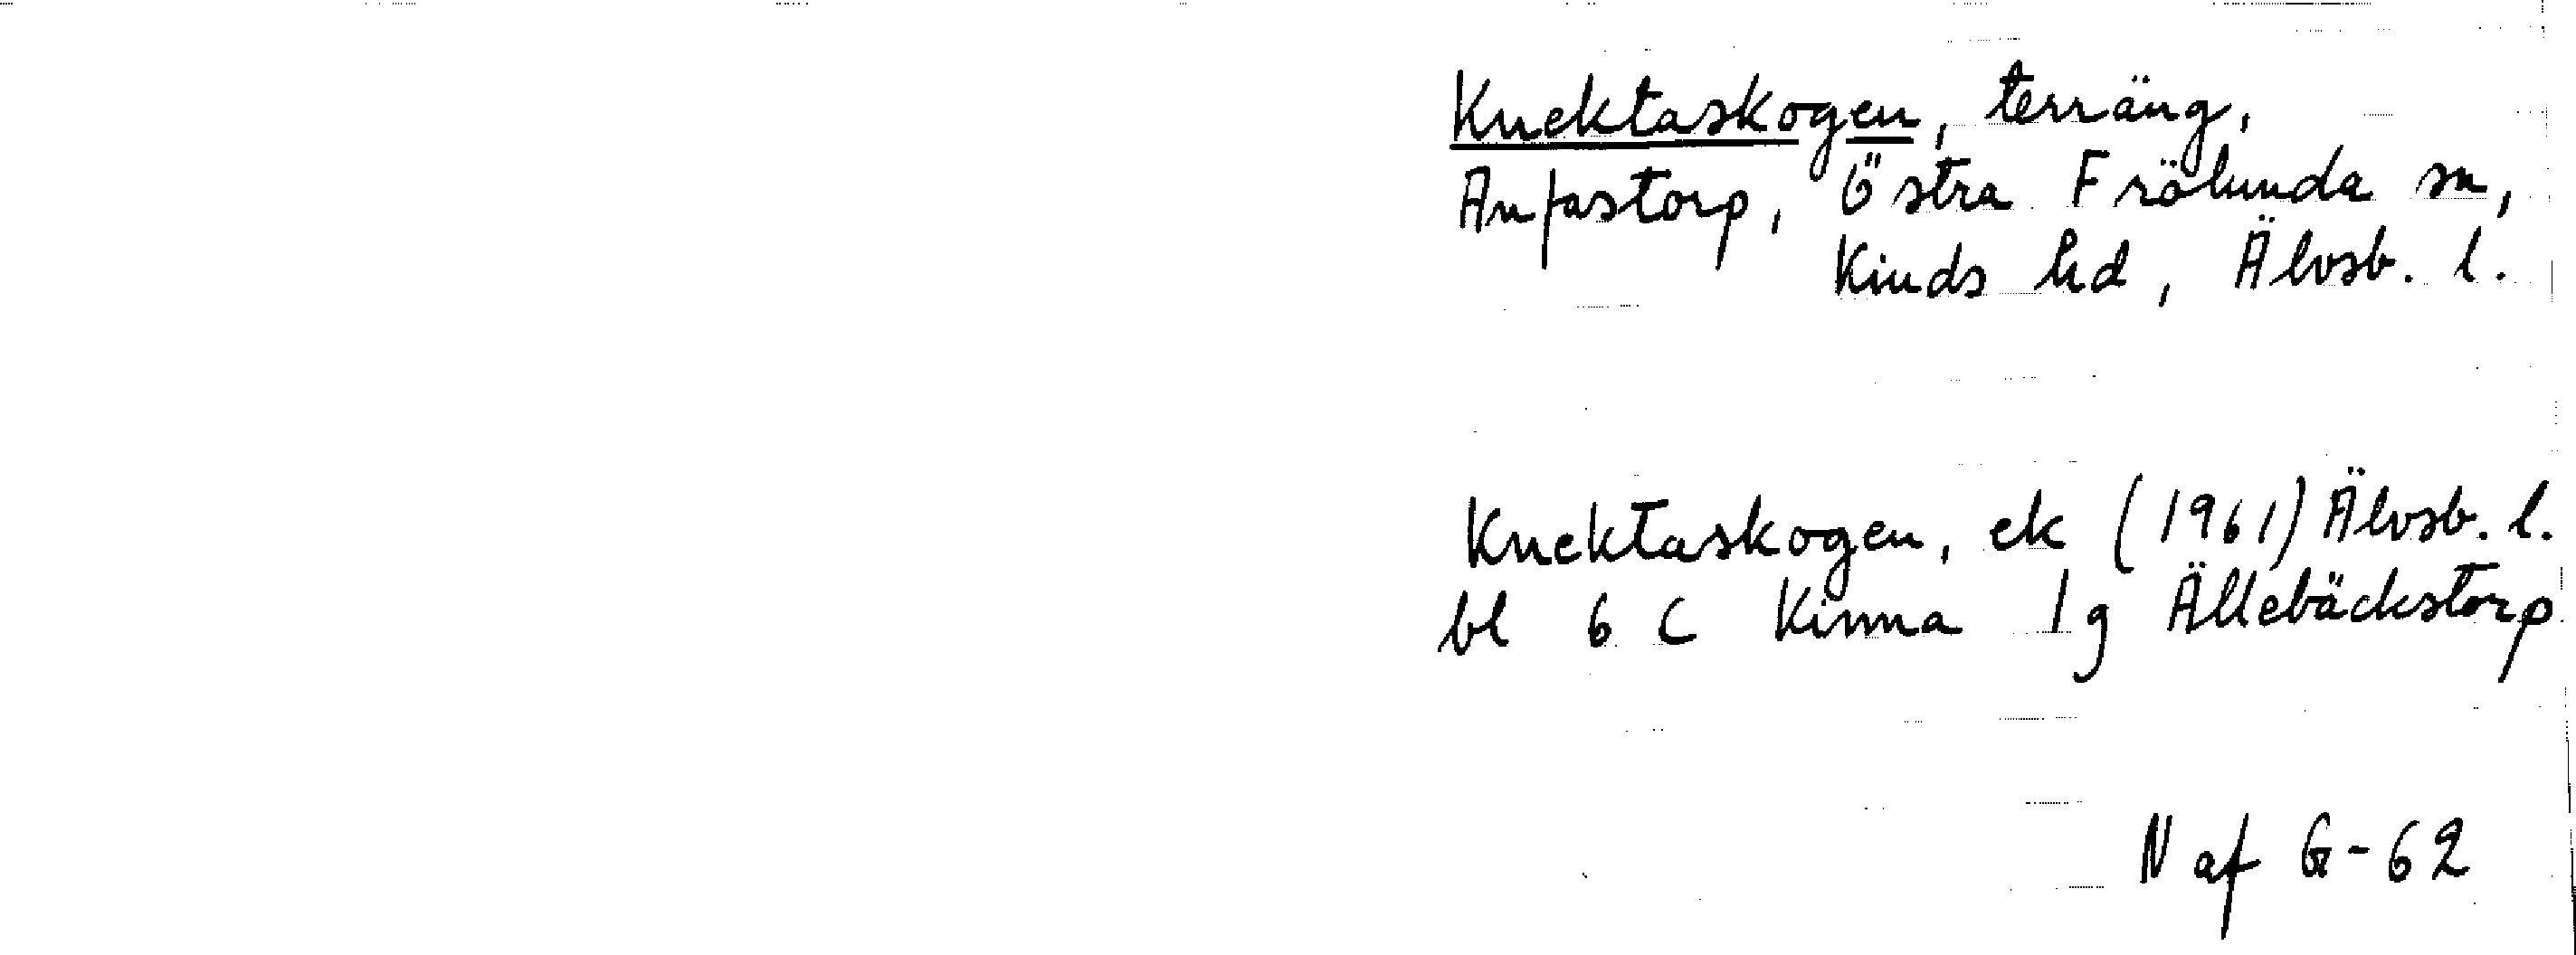 Knektaskogen, terräng,
Anfastorp, Östra Frölunda sn,
Kinds hd, Älvsb. l.
Knektaskogen, ek (1961) Älvsb. l.
bl 6 C Kinna 1g Ällebäckstorp
N af G-62